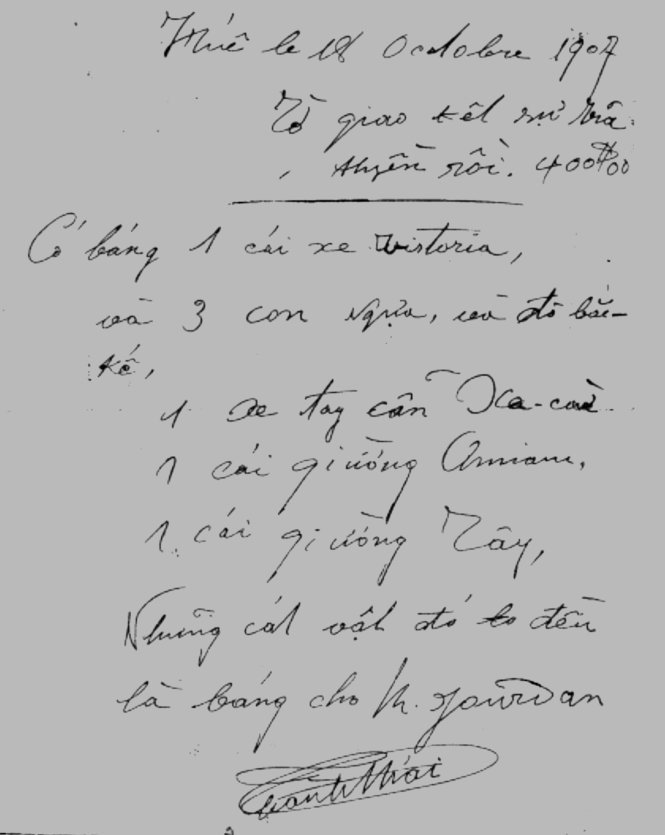 Huê le 18 Octobre 1907
Tờ giao kêt sự
rồi. 400$00
Có báng 1 cái xe victoria,
và 3 con ngựa, và đồ bắc-
kế,
1 xe tay
1 cái giường Annam,
1 cái giường Tây,
Những các vật đó to đều
là báng cho M. Jourdan
Thành Thái